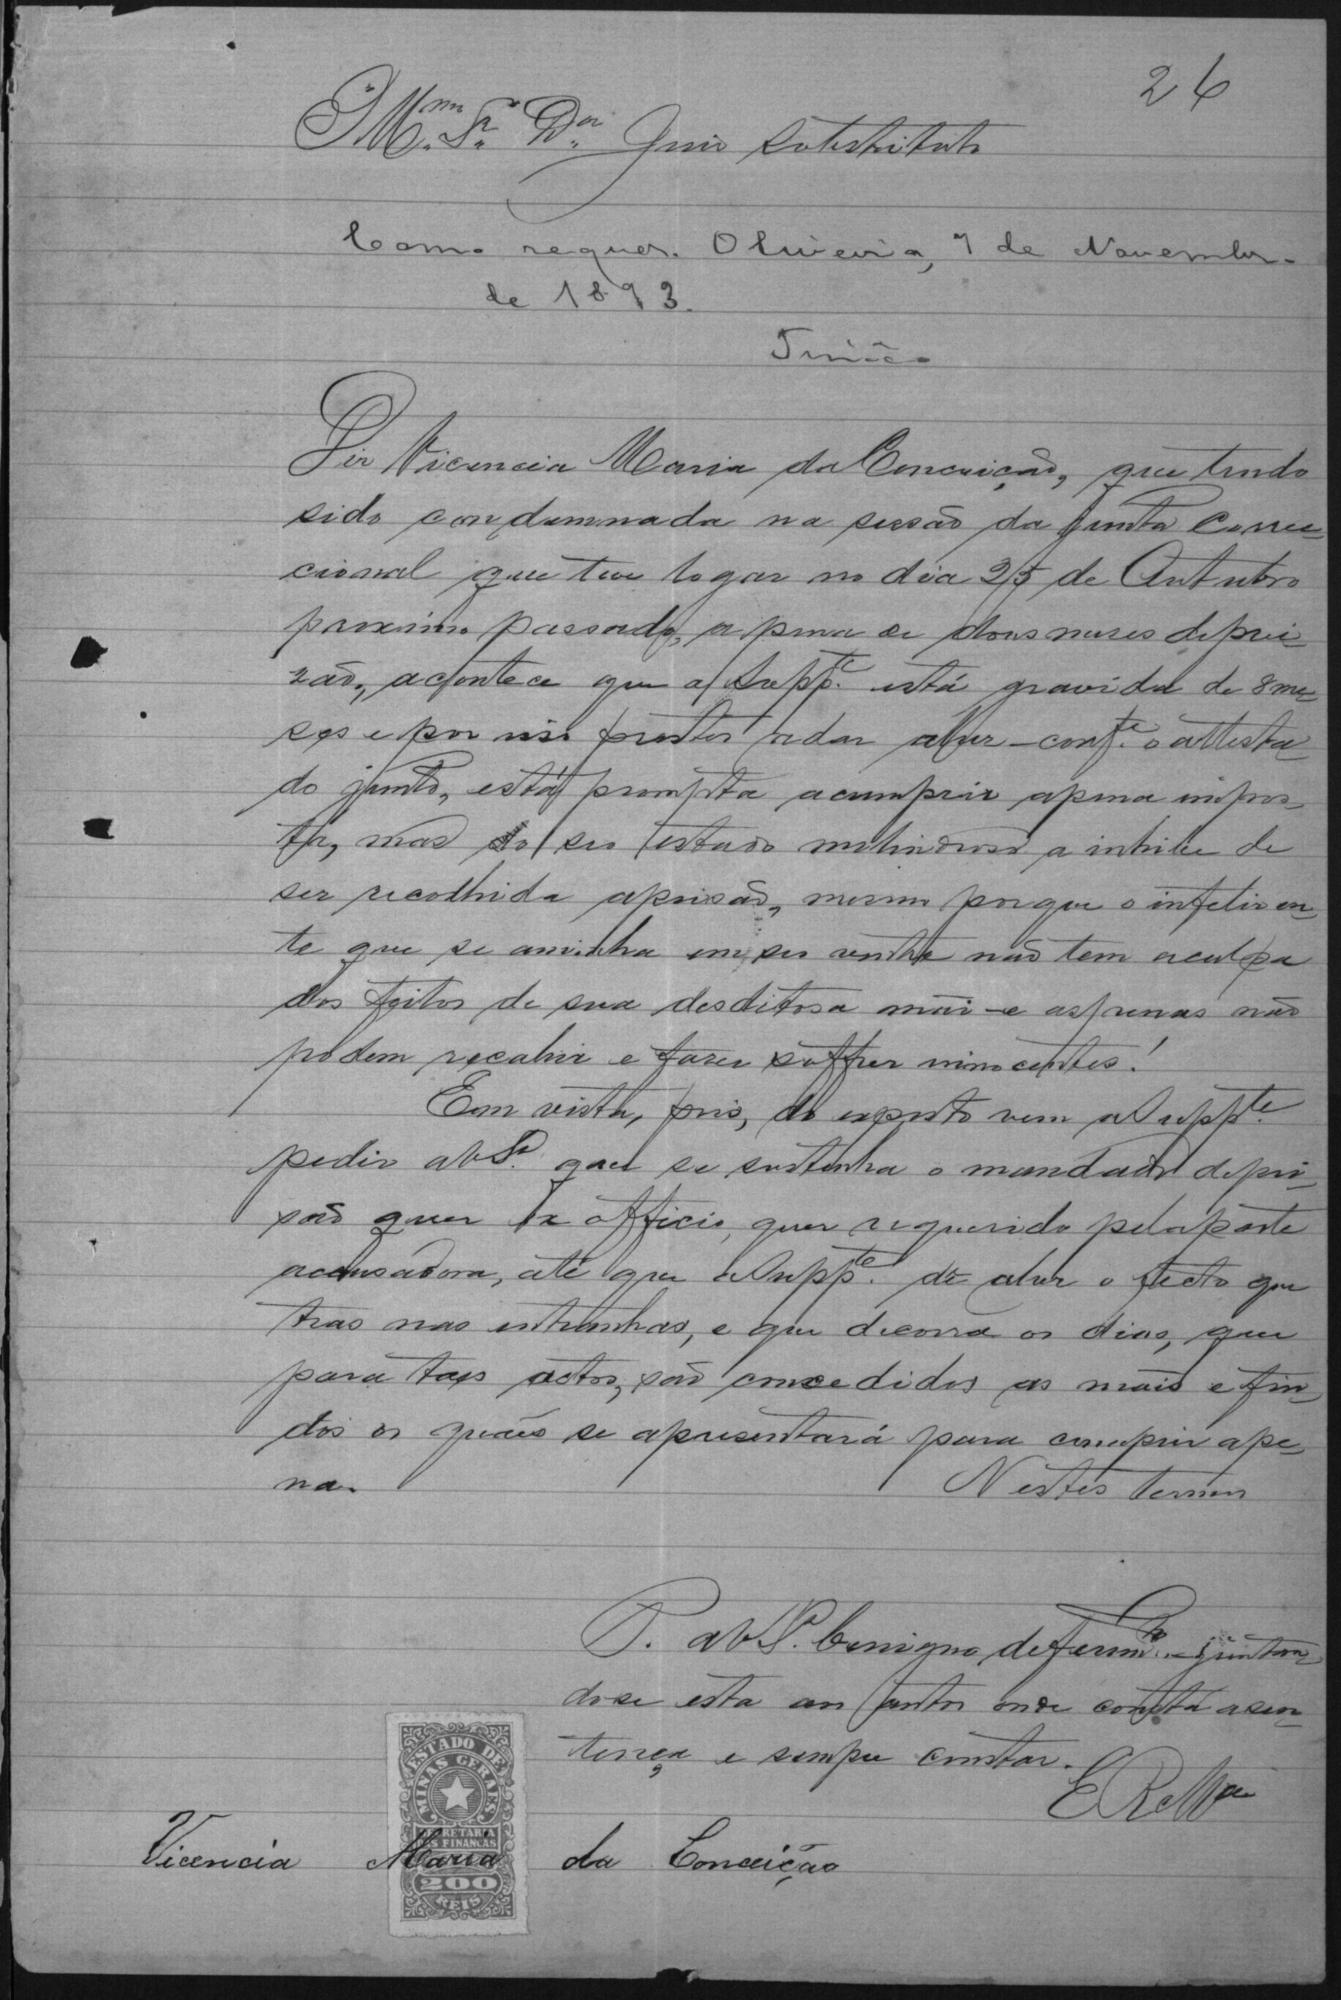 26
Illmo. Sr. Dor. Juiz Substituto
Como requer. Oliveira, 7 de Novembro
de 1893.
Diz Vicencia Maria da Conceição, que tendo
sido condemnada na sessão da Junta Correc-
cional que teve logar no dia 25 de Outubro
proximo passado, a pena de dous meses de pri-
zão, acontece que a Suppte. está gravida de 8 me-
ses e por isso prestes a dar a luz - confe. o attesta-
do junto, está prompta a cumprir a pena impos-
ta, mas o seo estado melindroso a inhibe de
ser recolhida a prisão, mesmo porque o infeliz en-
te que se aninha em seo ventre não tem a culpa
dos feitos de sua desditosa mãi - e as penas não
podem recahir e fazer soffrer innocentes!
Em vista, pois, do exposto vem a Suppte.
pedir a V. Sa. que se sustenha o mandado de pri-
são quer ex officio, quer requerido pela parte
accusadora, até que a Suppte. dê a luz o fecto que
tras nas entranhas, e que decorra os dias, que
para taes actos, são concedidos as mãis e fin-
dos os quaes se apresentará para cumprir a pe-
na. Nestes termos
P. a V. Sa. benigno deferimto. - juntan-
do-se esta aos autos onde consta a sen-
tença e sempre constar.
E R Mce
ESTADO DE
MINAS GERAES
SECRETARIA
DAS FINANCAS
200
REIS
Vicencia Maria da Conceição